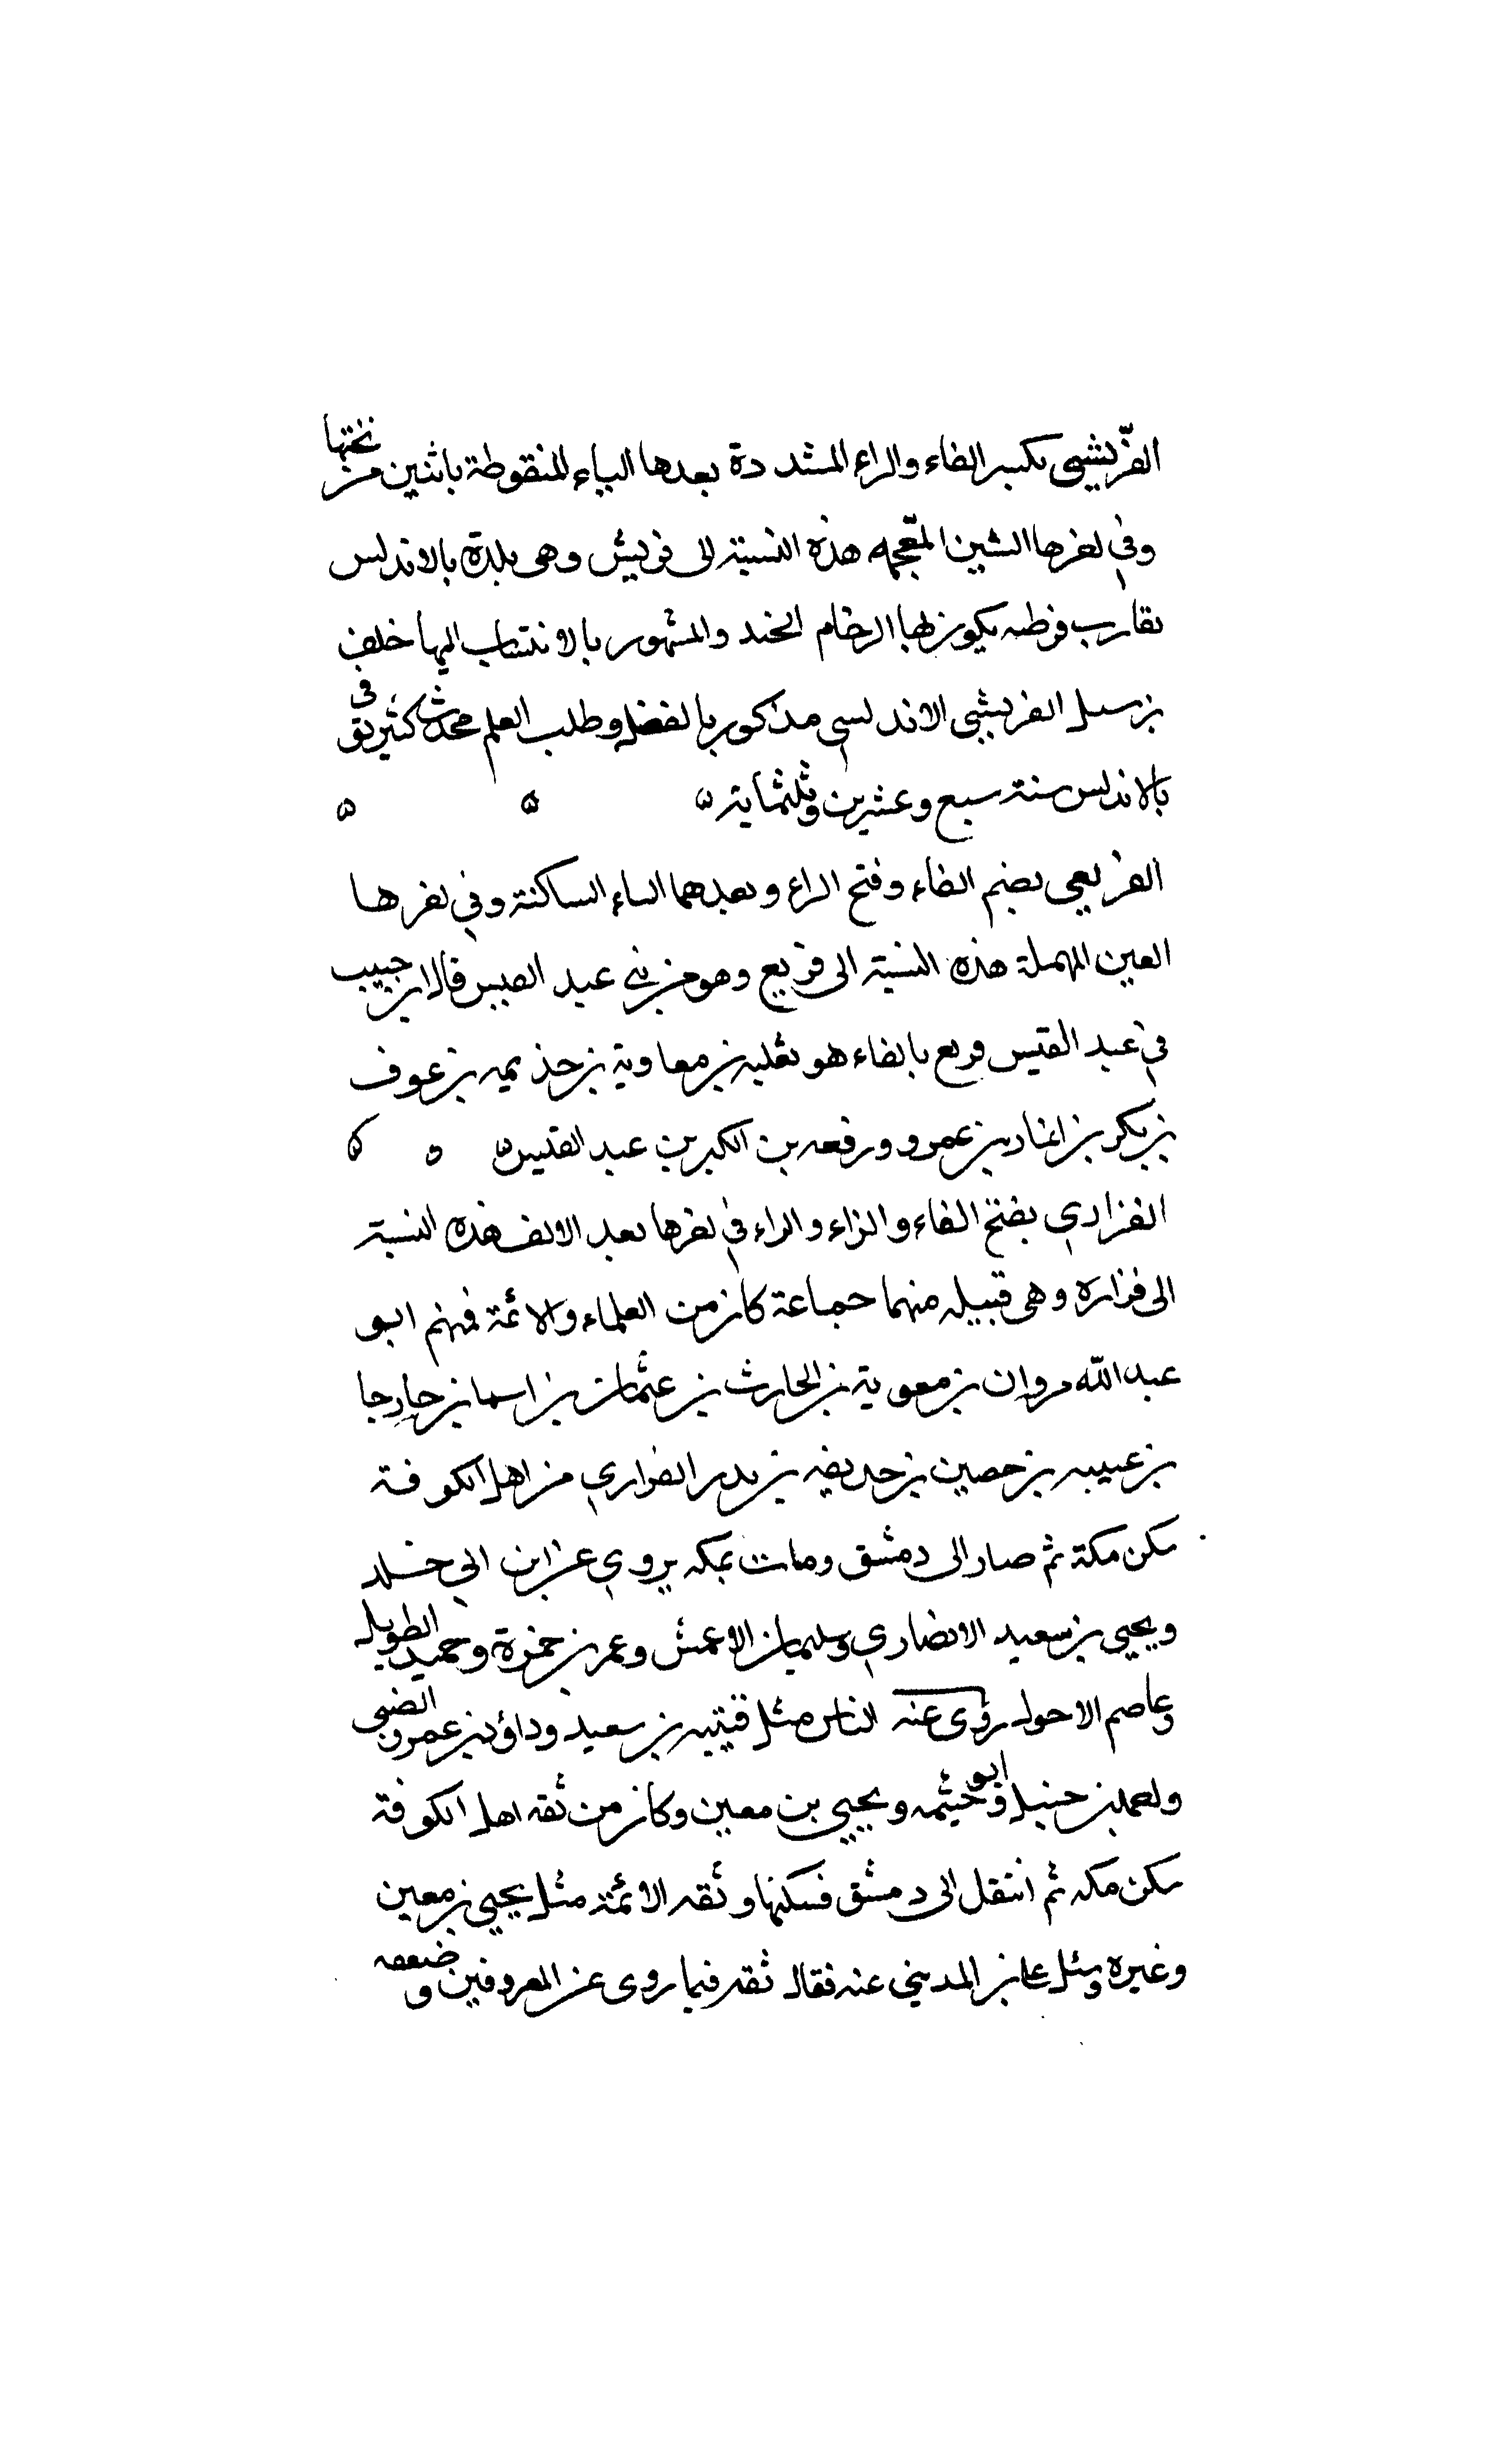 الفّريشي بكسر الفاء والراء المشددة بعدها الياء المنقوطة باثنين من تحتها
وفي اخرها الشين المعجمه هذه النسبة الى فريش وهى بلدة بالاندلس
تقارب قرطبه يكون بها الرخام الجيد والمشهور بالانتساب اليها خلف
بن بسيل الفريشي الاندلسي مذكور بالفضل وطلب العلم محدث كثير توفى
بالاندلس سنة سبع وعشرين وثلثماية
الفريعي بضم الفاء وفتح الراء وبعدهما الياء الساكنة وفي اخرها
العين المهملة هذه النسبة الى فريع وهو من بني عبد القيس قال ابن حبيب
في عبد القيس فريع بالفاء هو ثعلبه بن معاوية بن جذيمه بن عوف
بن بكر بن انمار بن عمرو ورفعه بن الكبر بن عبد القيس
الفزاري بفتح الفاء والزاء والراء في اخرها بعد الالف هذه النسبة
الى فزاره وهى قبيله منهما جماعة كان من العلماء والائمة فمنهم ابو
عبد الله مروان بن معوية بن الحارث بن عثمان بن اسما بن خارجا
بن عيينه بن حصين بن حذيفه بن بدر الفزاري من اهل الكوفة
سكن مكة ثم صار الى دمشق ومات بمكه يروي عن ابن ابي خلد
ويحيى بن سعيد الانصاري وسليمان الاعمش وعمر بن حمزة وحميد الطويل
وعاصم الاحول روى عنه الناس مثل قتيبه بن سعيد وداؤد بن عمرو الضبى
واحمد بن حنبل وابو خيثمه ويحيى بن معين وكان من ثقه اهل الكوفة
سكن مكه ثم انتقل الى دمشق فسكنها وثقه الائمة مثل يحيى بن معين
وغيره وسئل على بن المديني عنه فقال ثقه فيما روى عن المعروفين وضعفه